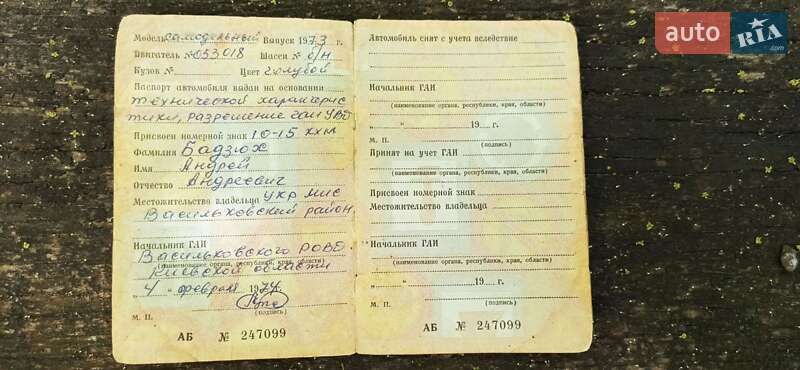 Модель самодельный Выпуск 1973 г.
Двигатель № 053018 Шасси № б/н
Кузов № Цвет голубой
Паспорт автомобиля выдан на основании
технической характерис
тики, разрешение гаи УВД
Присвоен номерной знак 10-15 ххм
Фамилия Бадзюх
Имя Андрей
Отчество Андреевич
Местожительство владельца УКР МИС
Васильковский район.
Начальник ГАИ
Васильковского РОВД.
(наименование органа, республики, края, области)
Киевской области
"4" февраля 1974 г.
(подпись)
М. П.
АБ № 247099
Автомобиль снят с учета вследствие
Начальник ГАИ
(наименование органа, республики, края, области)
" " 19 г.
М. П. (подпись)
Принят на учет ГАИ
(наименование органа, республики, края, области)
Присвоен номерной знак
Местожительство владельца
Начальник ГАИ
(наименование органа, республики, края, области)
" " 19 г.
(подпись)
М. П.
АБ № 247099
auto RIA .com